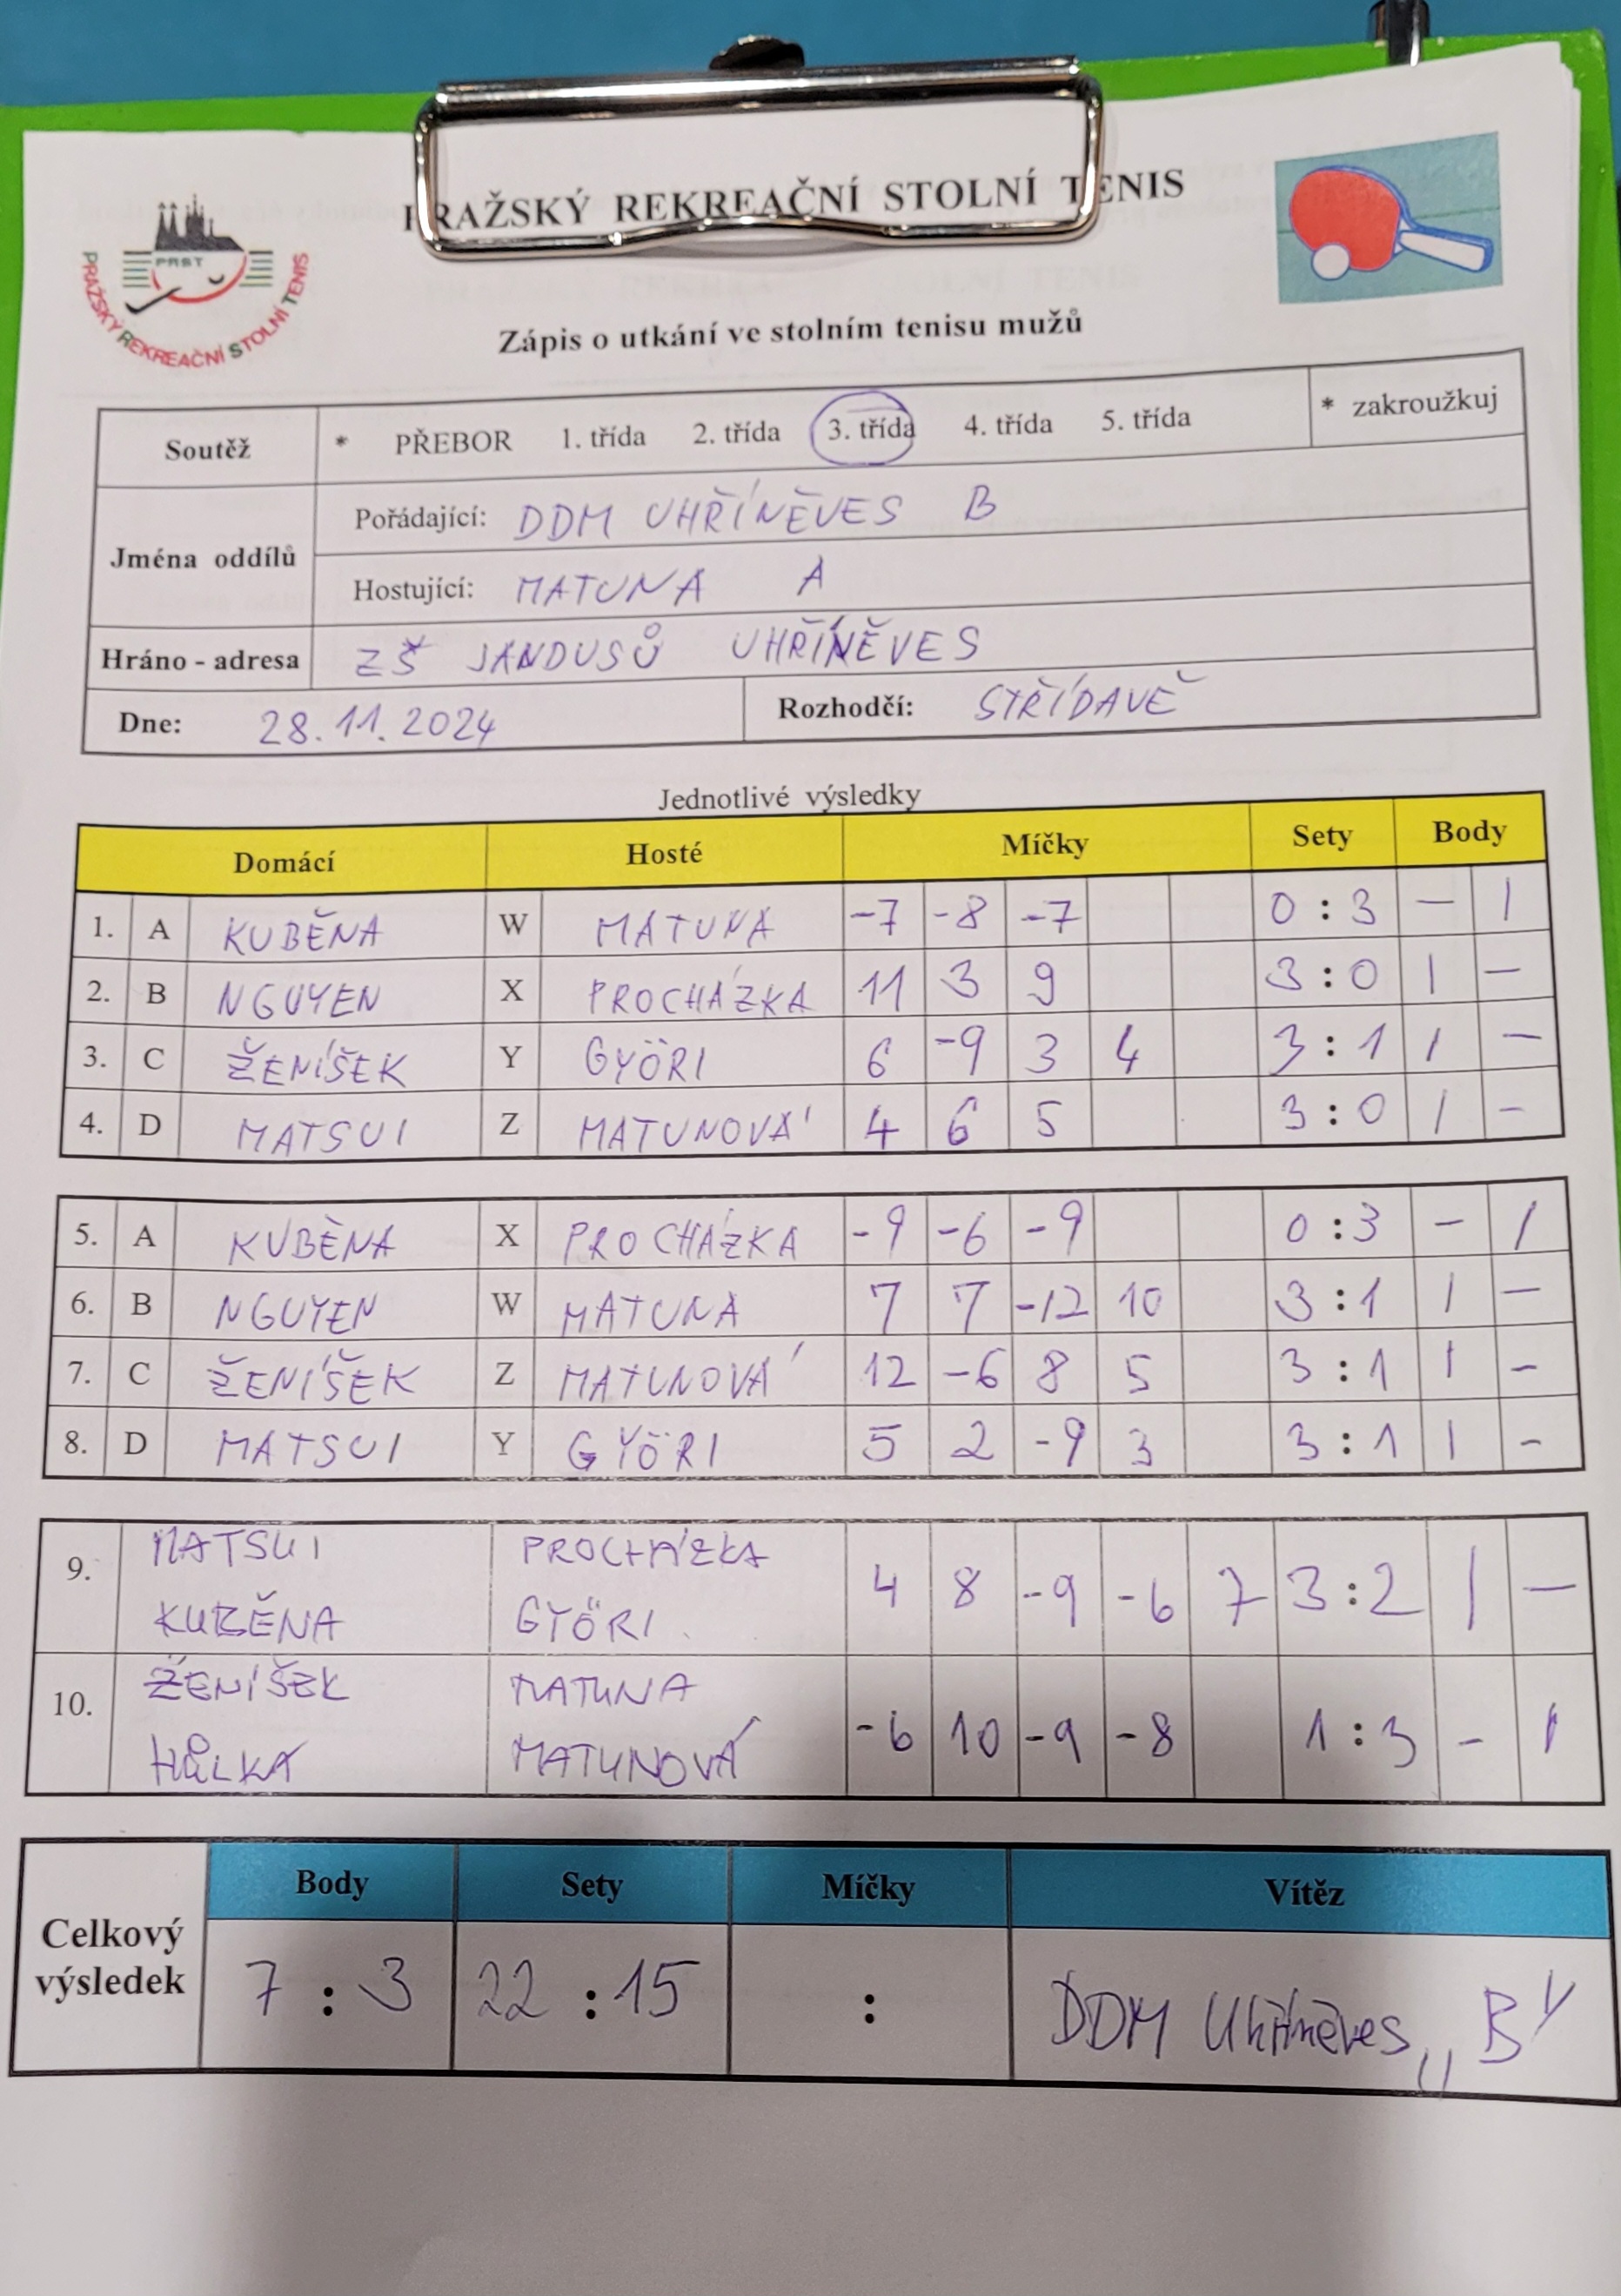 PRAŽSKÝ REKREAČNÍ STOLNÍ TENIS
PRST
PRAŽSKÝ REKREAČNÍ STOLNÍ TENIS
Zápis o utkání ve stolním tenisu mužů
Soutěž * PŘEBOR 1. třída 2. třída 3. třída 4. třída 5. třída * zakroužkuj
Jména oddílů
Pořádající: DDM UHŘÍNĚVES B
Hostující: MATUNA A
Hráno - adresa ZŠ JANDUSŮ UHŘÍNĚVES
Dne: 28.11.2024 Rozhodčí: STŘÍDAVĚ
Jednotlivé výsledky
Domácí Hosté Míčky Sety Body
1. A KUBĚNA W MATUNA -7 -8 -7 0 : 3 — 1
2. B NGUYEN X PROCHÁZKA 11 3 9 3 : 0 1 —
3. C ŽENÍŠEK Y GYÖRI 6 -9 3 4 3 : 1 1 —
4. D MATSUI Z MATUNOVÁ 4 6 5 3 : 0 1 -
5. A KUBĚNA X PROCHÁZKA -9 -6 -9 0 : 3 - 1
6. B NGUYEN W MATUNA 7 7 -12 10 3 : 1 1 —
7. C ŽENÍŠEK Z MATUNOVÁ 12 -6 8 5 3 : 1 1 -
8. D MATSUI Y GYÖRI 5 2 -9 3 3 : 1 1 -
MATSUI PROCHÁZKA
9. 4 8 -9 -6 7 3 : 2 1 —
KUBĚNA GYÖRI
ŽENÍŠEK MATUNA
10. -6 10 -9 -8 1 : 3 - 1
HŮLKA MATUNOVÁ
Body Sety Míčky Vítěz
Celkový výsledek 7 : 3 22 : 15 : DDM Uhříněves „B"